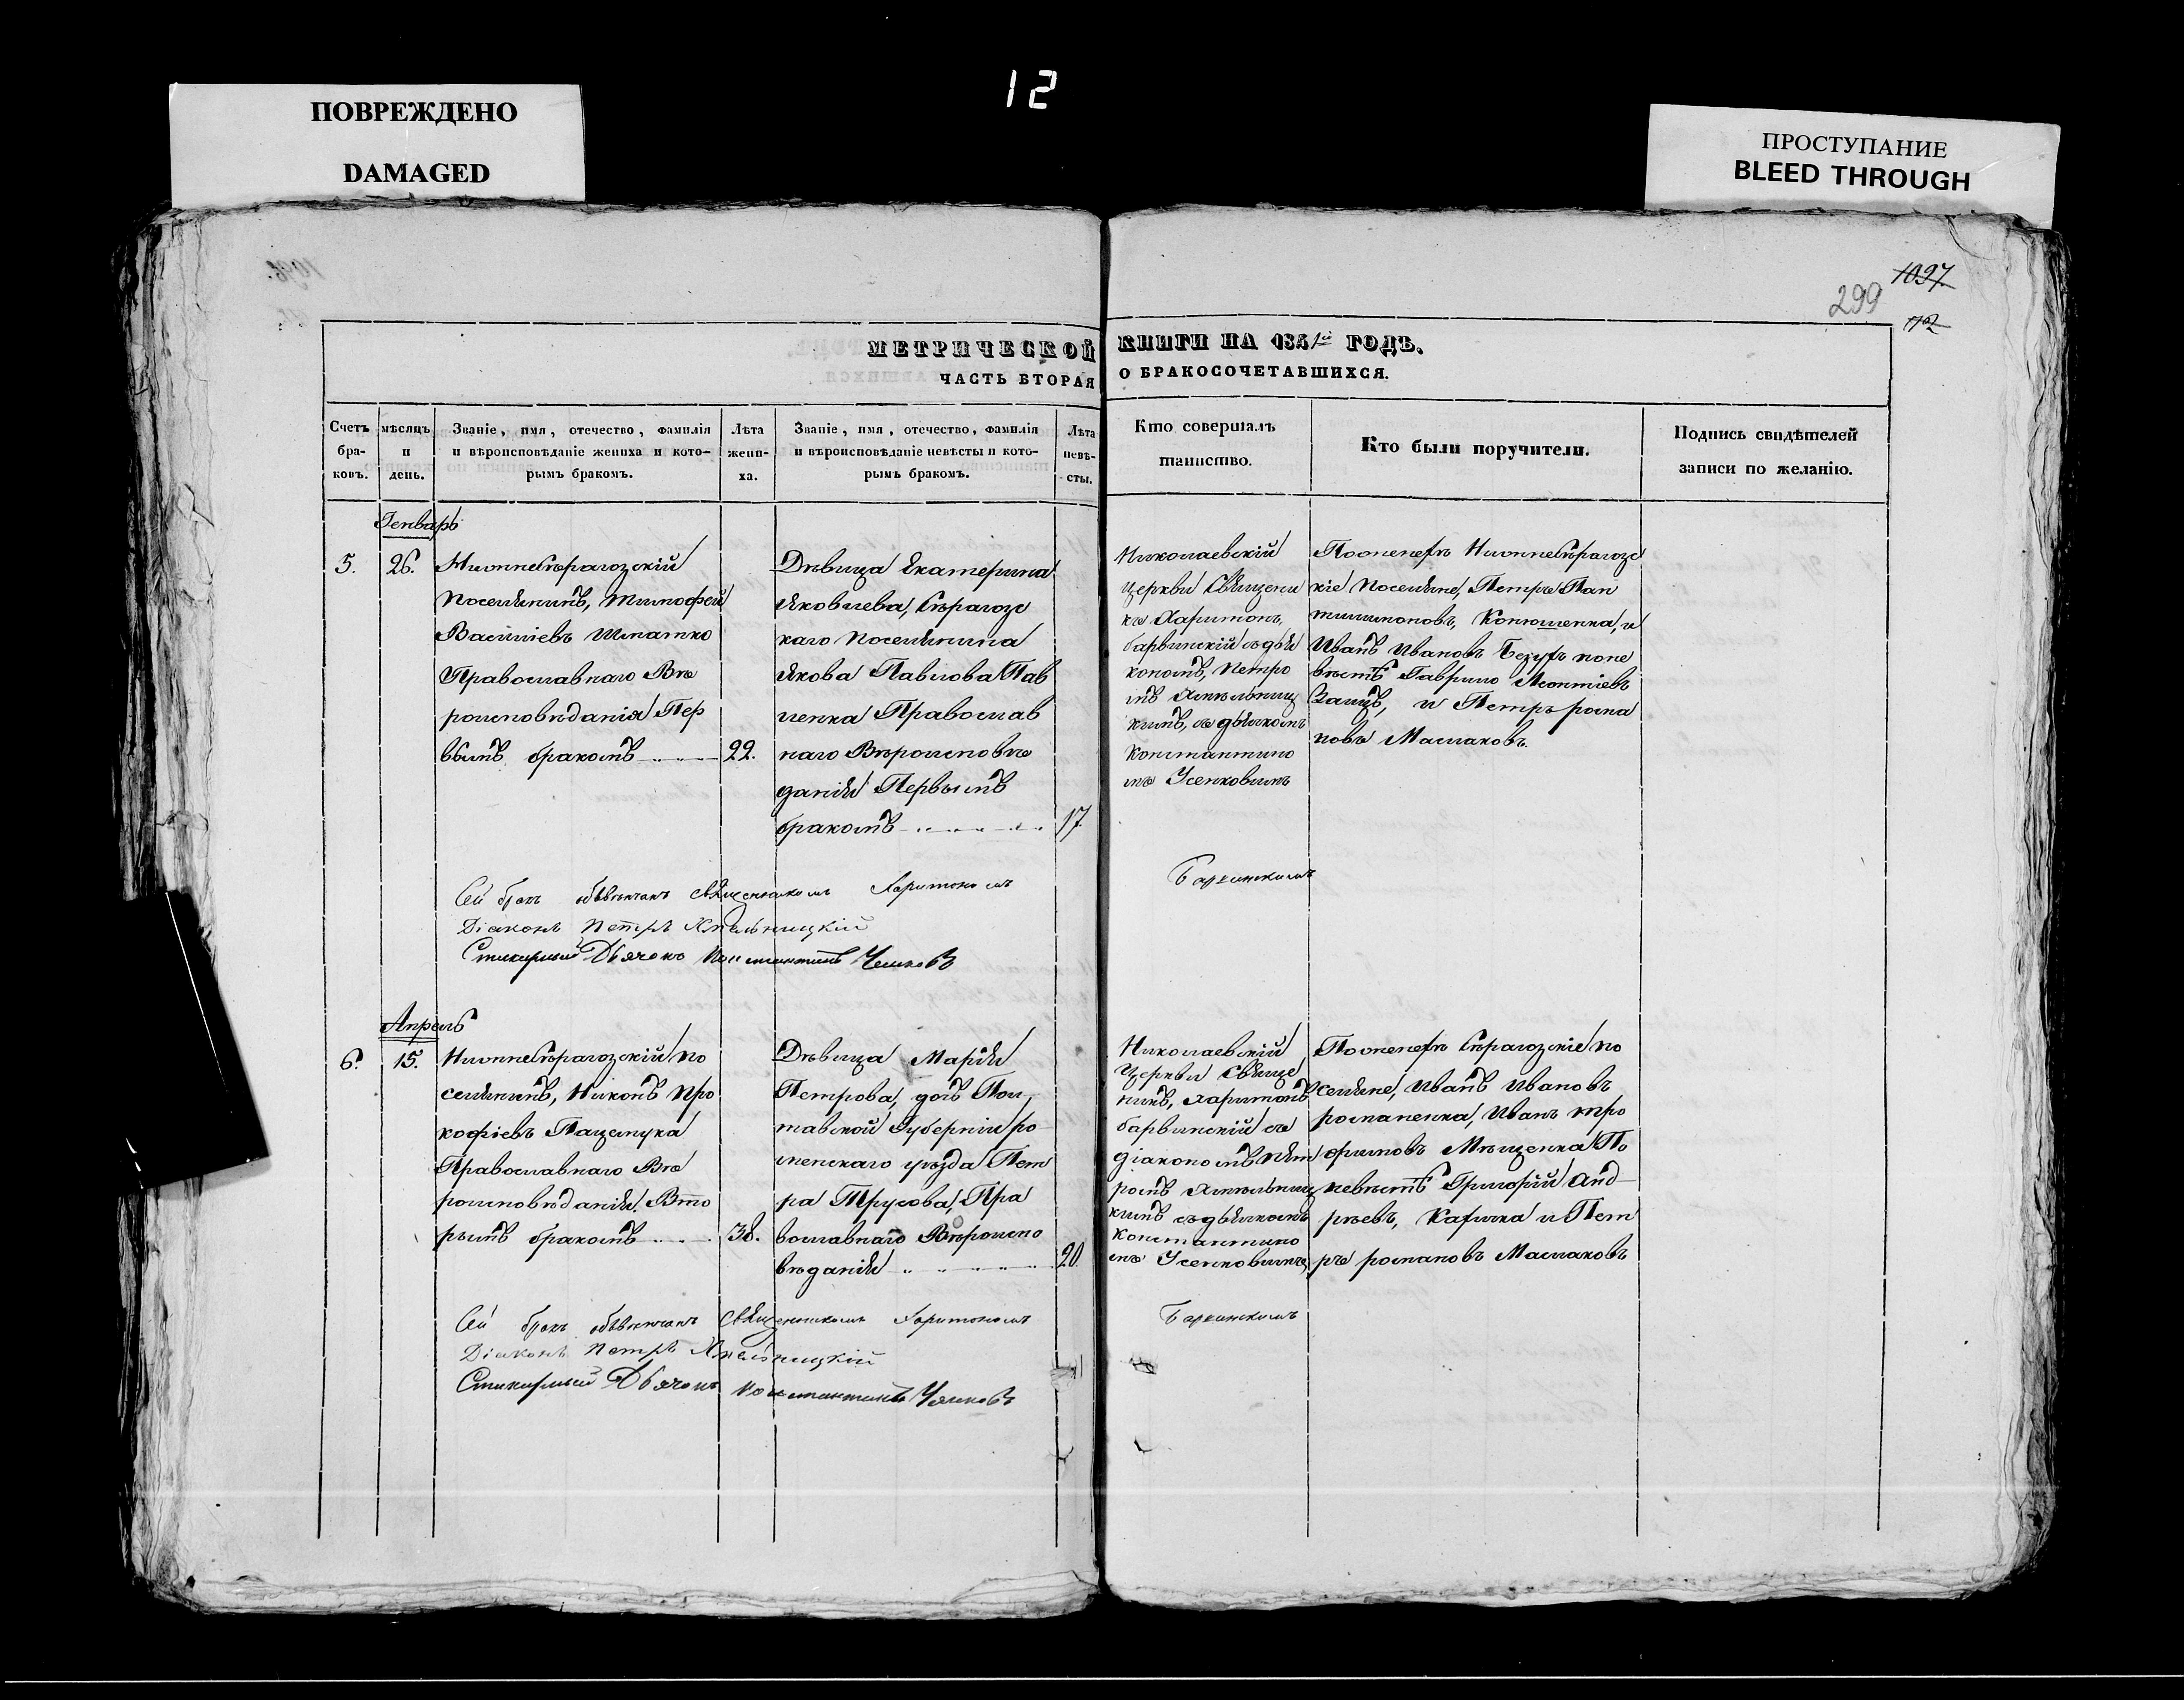 12
ПОВРЕЖДЕНО
DAMAGED
ПРОСТУПАНИЕ
BLEED THROUGH
1097
299
МЕТРИЧЕСКОЙ
ЧАСТЬ ВТОРАЯ
КНИГИ НА 1851й ГОДЪ.
О БРАКОСОЧЕТАВШИХСЯ.
Счетъ бра- ковъ.
мѣсяцъ и день.
Званіе, имя, отечество, фамилія
и вѣроисповѣданіе жениха и кото-
рымъ бракомъ.
Лѣта жени- ха.
Званіе, имя, отечество, фамилія
и вѣроисповѣданіе невѣсты и кото-
рымъ бракомъ.
Лѣта невѣ- сты.
Кто совершалъ
таинство.
Кто были поручители.
Подпись свидѣтелей
записи по желанію.
Генварь
5.
26.
Нижнесѣрагозскій
поселянинъ, Тимофей
Василіевъ Шматко
Православнаго Вѣ
роисповѣданія Пер
вымъ бракомъ
22.
Дѣвица Екатерина
Яковлева, Сѣрагозс
каго поселянина
Якова Павлова Пав
ленка Православ
наго Вѣроисповѣ
данія Первымъ
бракомъ
17
Николаевской
церкви Священи
къ Харитонъ
барвинскій съ дья
кономъ, Петро
мъ Хмѣльниц
кимъ, съ дьячкомъ
Константино
мъ Усенковимъ
Поженехѣ Нижнесѣрагозс
кіе поселяне, Петръ Пан
тилимоновъ, Конюшенка, и
Иванъ Ивановъ Безухъ поне
вѣстѣ Гаврило Леонтіевъ
Заицъ, и Петръ рома
новъ Маслаковъ.
Сей бракъ обвѣнчанъ священникомъ Харитономъ
Барвинскимъ
Діаконъ Петръ Хмельницкій
Стихарный Дьячокъ Константинъ
Апрель
6.
15.
Нижнесѣрагозскій по
селянинъ, Никонъ Про
кофіевъ Пащемука
Православнаго Вѣ
роисповѣданія. Вто
рымъ бракомъ
38.
Дѣвица Марія
Петрова, дочь Пол
тавской Губерніи ро
менскаго уѣзда Пет
ра Трусова, Пра
вославнаго Вѣроиспо
вѣданія
20
Николаевской
Церкви Свяще
никъ, Харитонъ
барвинскій съ
діакономъ Пет
ромъ Хмѣльниц
кимъ съ дьячкомъ
Константино
мъ Усенковимъ
Поженехѣ Сѣрагозскіе по
селяне, Иванъ Ивановъ
романенка, Иванъ тро
фимовъ Мѣщенка По
невѣстѣ Григорій Анд
рѣевъ, Карика и Пет
ръ романовъ Маслаковъ
Сей бракъ обвѣнчанъ священникомъ Харитономъ
Барвинскимъ
Діаконъ Петръ Хмельницкій
Стихарный Дьячокъ Константинъ